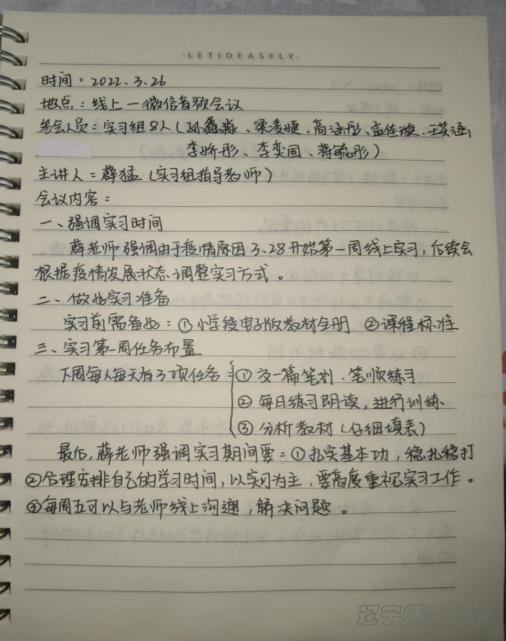 ·LETIDEASFLY·
时间：2022.3.26
地点：线上—微信音频会议
参会人员：实习组8人（孙鑫淼、梁麦婕、高涵彤、孟佳璇、王笑涵、
李昕彤、李奕园、蒋毓彤）
主讲人：薛猛（实习组指导老师）
会议内容：
一、强调实习时间
薛老师强调由于疫情原因3.28开始第一周线上实习，后续会
根据疫情发展状态调整实习方式。
二、做好实习准备
实习前需备好：①小学段电子版教材全册 ②课程标准
三、实习第一周任务布置
下周每人每天有3项任务 ①交一篇笔划、笔顺练习
②每日练习朗读，进行训练
③分析教材（仔细填表）
最后，薛老师强调实习期间要：①扎实基本功，稳扎稳打
②合理安排自己的学习时间，以实习为主，要高度重视实习工作。
③每周五可以与老师线上沟通，解决问题。
辽宁师范大学